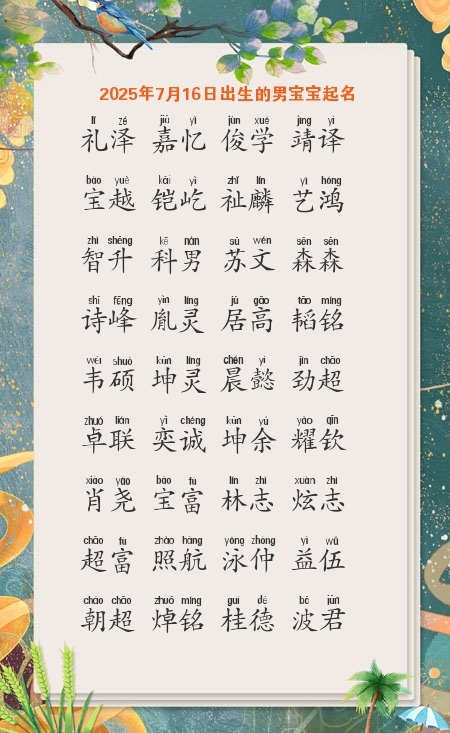 2025年7月16日出生的男宝宝起名
lǐ zé jiā yì jùn xué jìng yì
礼泽 嘉忆 俊学 靖译
bǎo yuè kǎi yì zhǐ lín yì hóng
宝越 铠屹 祉麟 艺鸿
zhì shēng kē nán sū wén sēn sēn
智升 科男 苏文 森森
shī fēng yìn líng jū gāo tāo míng
诗峰 胤灵 居高 韬铭
wéi shuò kūn líng chén yì jìn chāo
韦硕 坤灵 晨懿 劲超
zhuó lián yì chéng kūn yú yào qīn
卓联 奕诚 坤余 耀钦
xiāo yáo bǎo fù lín zhì xuàn zhì
肖尧 宝富 林志 炫志
chāo fù zhào háng yǒng zhòng yì wǔ
超富 照航 泳仲 益伍
cháo chāo zhuō míng guì dé bō jūn
朝超 焯铭 桂德 波君